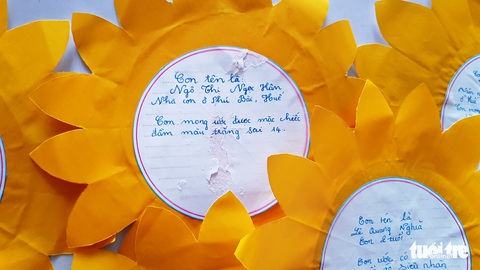 Con tên là
Ngô Thị Ngọc Hân
Nhà con ở Phú Bài, Huế
Con mong ước được mặc chiếc
đầm màu trắng sai 14.
Con tên là
Lê Quang Nghĩa
Con 8 tuổi
Con ước có
siêu nhân
tuổi trẻ